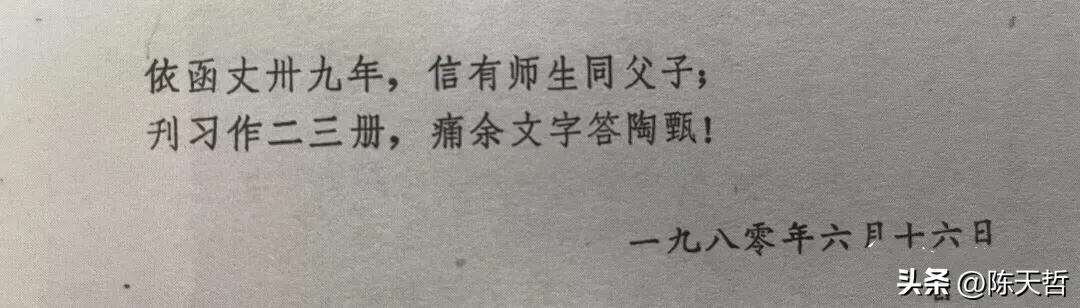 依函丈卅九年，信有师生同父子；
刊习作二三册，痛余文字答陶甄！
一九八零年六月十六日
头条 @陈天哲